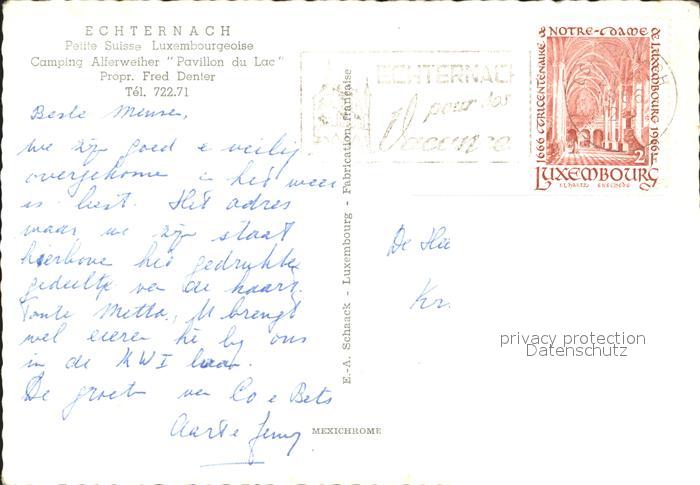 ECHTERNACH
Petite Suisse Luxembourgeoise
Camping Alferweiher "Pavillon du Lac"
Propr. Fred Denter
Tél. 722.71
Beste Mensen,
we zijn goed e veilig
overgekome e het weer
is best. Het adres
waar we zijn staat
hierbove het gedrukte
gedeelte van de kaart.
Tante Metta, U brengt
wel eieren bij ons
in de
De groet van Co e Bets
Aart e Jenny
E.-A. Schaack - Luxembourg - Fabrication française
MEXICHROME
ECHTERNACH
pour vos
Vacances
1666 TRICENTENAIRE DE NOTRE-DAME DE LUXEMBOURG 1966
2F
LUXEMBOURG
De
privacy protection
Datenschutz